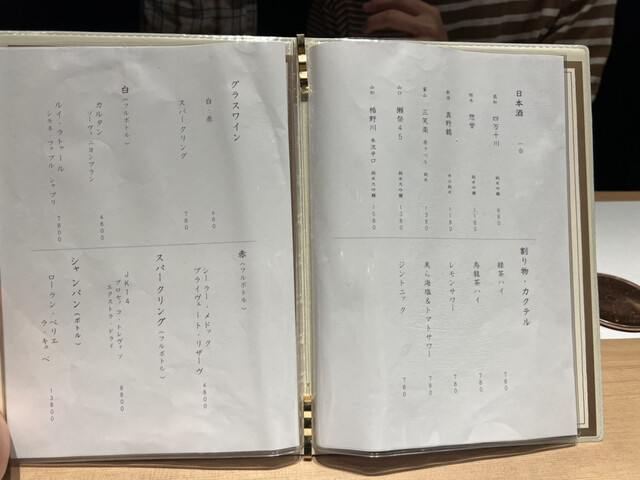 日本酒 (合)
高知 四万十川 純米吟醸 980
栃木 惣誉 純米吟醸 1180
新潟 真野鶴 辛口純米 1180
富山 三笑楽 純米 1380
山口 獺祭45 純米大吟醸 1380
山形 楯野川 純米大吟醸 1580
割り物・カクテル
緑茶ハイ 780
烏龍茶ハイ 780
レモンサワー 780
藻ら海塩&トマトサワー 780
ジントニック 780
グラスワイン
白・赤 980
スパークリング 780
白(フルボトル)
カルタン
ソーヴィニヨンブラン 4800
ルイ・ラトゥール
シモネ フェブル シャブリ 7800
赤(フルボトル)
シーラー・メドック
プライヴェート・リザーヴ 4800
スパークリング(フルボトル)
JK14
プロセッコ・トレヴィソ
エクストラ・ドライ 6800
シャンパン(ボトル)
ローラン・ペリエ
ラ・キュベ 13800